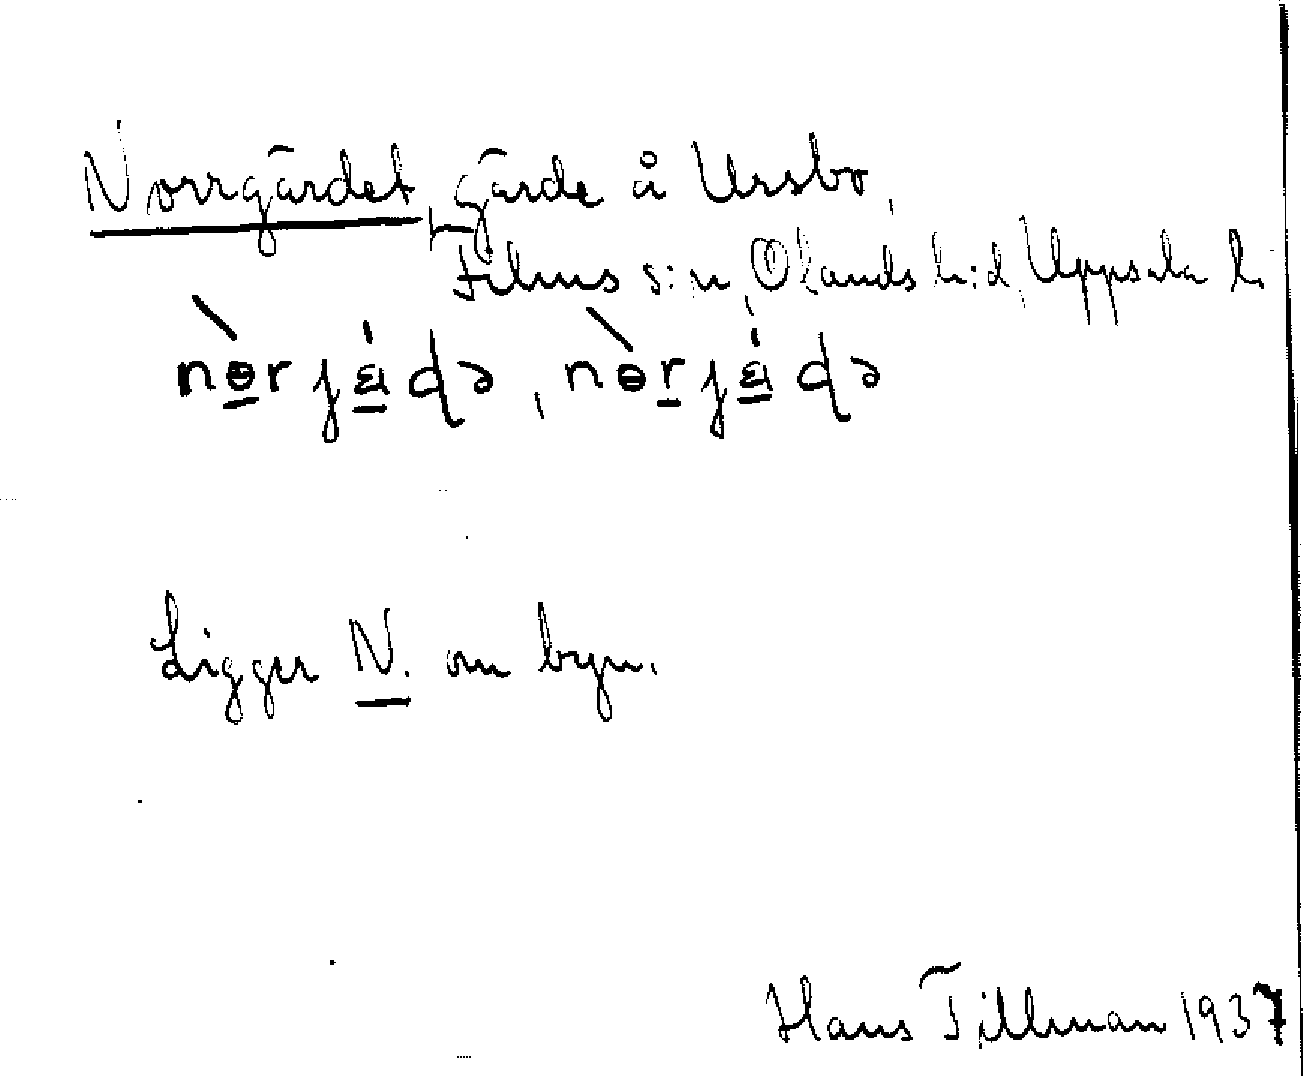 Norrgärdet, gärde å Ursbo,
Films s:n, Olands h:d, Uppsala l.
Ligger N. om byn.
Hans Tillman 1937